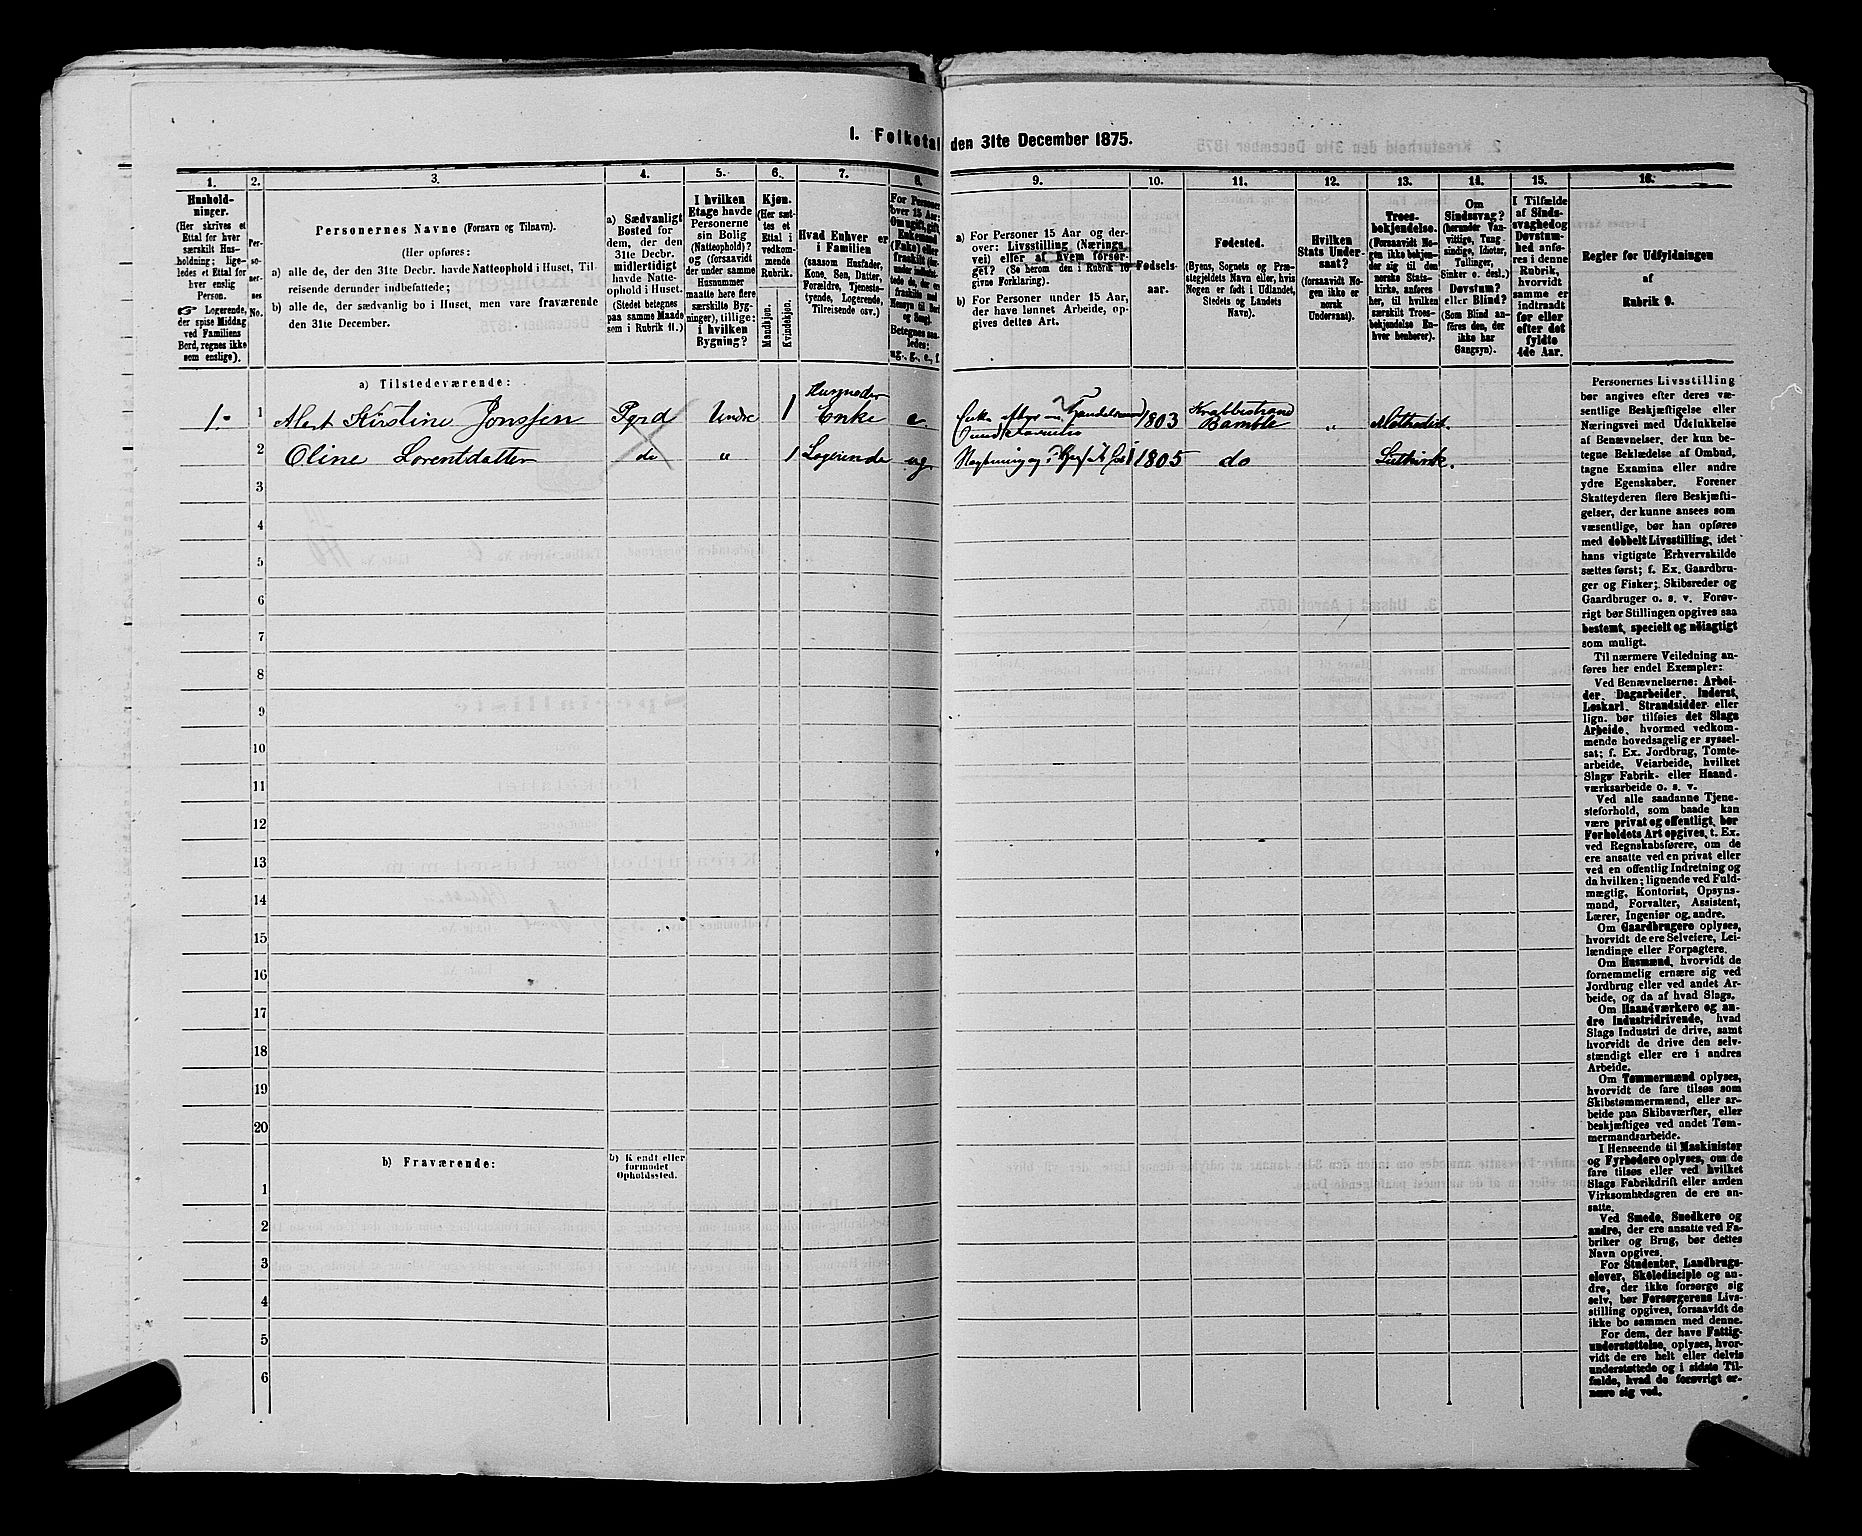 I. Folketal den 31te December 1875.
1.
2.
3.
4.
5.
6.
7.
8.
9.
10.
11.
12.
13.
14.
15.
16.
Hushold-
ninger.
(Her skrives et
Ettal for hver
særskilt Hus-
holdning; lige-
ledes et Ettal for
hver enslig
Person.
☞ Logerende,
der spise Middag
ved Familiens
Bord, regnes ikke
som enslige).
Per-
so-
ner-
nes
No.
Personernes Navne (Fornavn og Tilnavn).
(Her opføres:
a) alle de, der den 31te Decbr. havde Natteophold i Huset, Til-
reisende derunder indbefattede;
b) alle de, der sædvanlig bo i Huset, men vare fraværende
den 31te December.
a) Sædvanligt
Bosted for
dem, der den
31te Decbr.
midlertidigt
havde Natte-
ophold i Huset.
(Stedet betegnes
paa samme Maade
som i Rubrik 11.)
I hvilken
Etage havde
Personerne
sin Bolig
(Natteophold)?
og (forsaavidt
der under samme
Husnummer
maatte høre flere
særskilte Byg-
ninger), tillige:
i hvilken
Bygning?
Kjøn.
(Her sæt-
tes et
Ettal i
vedkom-
mende
Rubrik.
Mandkjøn.
Kvindekjøn.
Hvad Enhver er
i Familien
(saasom Husfader,
Kone, Søn, Datter,
Forældre, Tjeneste-
tyende, Logerende,
Tilreisende osv.)
For Personer
over 15 Aar:
Om ugift, gift,
Enkemand
(Enke) eller
fraskilt
Betegnes saa-
ledes:
ug., g., e., f.
a) For Personer 15 Aar og der-
over: Livsstilling (Nærings-
vei) eller af hvem forsør-
get? (Se herom den i Rubrik 16
givne Forklaring).
b) For Personer under 15 Aar,
der have lønnet Arbeide, op-
gives dettes Art.
Fødsels-
aar.
Fødested.
(Byens, Sognets og Præ-
stegjeldets Navn eller, hvis
Nogen er født i Udlandet,
Stedets og Landets
Navn).
Hvilken
Stats Under-
saat?
(forsaavidt No-
gen ikke er
norsk
Undersaat).
Troes-
bekjendelse.
(Forsaavidt No-
gen ikke bekjen-
der sig til den
norske Stats-
kirke, anføres
her, til hvilken
særskilt Troes-
bekjendelse En-
hver henhører).
Om
Sindssvag?
(herunder Van-
vittige, Tung-
sindige, Idioter,
Tællinger,
Sinker o. desl.)
Døvstum?
eller Blind?
(Som Blind an-
føres den, der
ikke har
Gangsyn).
I Tilfælde
af Sinds-
svaghed og
Døvstum-
hed anfø-
res i denne
Rubrik,
hvorvidt
samme er
indtraadt
før eller
efter det
fyldte
4de Aar.
Regler for Udfyldningen
af
Rubrik 9.
a) Tilstedeværende:
1. 1 Kirstine Jonssen Undre 1 Enke e. 1803 Krabbestrand Bamble „ Methodist.
2 Oline Lorentdatter do „ 1 Logerende ug 1805 do
3
4
5
6
7
8
9
10
11
12
13
14
15
16
17
18
19
20
b) Fraværende:
b) Kjendt eller
formodet
Opholdssted.
1
2
3
4
5
6
Personernes Livsstilling
bør angives efter deres væ-
sentlige Beskjæftigelse eller
Næringsvei med Udelukkelse
af Benævnelser, der kun be-
tegne Beklædelse af Ombud,
tagne Examina eller andre
ydre Egenskaber. Forener
Skatteyderen flere Beskjæfti-
gelser, der kunne ansees som
væsentlige, bør han opføres
med dobbelt Livsstilling, idet
hans vigtigste Erhvervskilde
sættes først; f. Ex. Gaardbru-
ger og Fisker; Skibsreder og
Gaardbruger o. s. v. Forøv-
rigt bør Stillingen opgives saa
bestemt, specielt og nøiagtigt
som muligt.
Til nærmere Veiledning an-
føres her endel Exempler:
Ved Benævnelserne: Arbei-
der, Dagarbeider, Inderst,
Løskarl, Strandsidder eller
lign. bør tilføies det Slags
Arbeide, hvormed vedkom-
mende hovedsagelig er syssel-
sat; f. Ex. Jordbrug, Tomte-
arbeide, Veiarbeide, hvilket
Slags Fabrik- eller Haand-
værksarbeide o. s. v.
Ved alle saadanne Tjene-
steforhold, som baade kan
være privat og offentligt, bør
Forholdets Art opgives, t. Ex.
ved Regnskabsførere, om de
ere ansatte ved en privat eller
ved en offentlig Indretning og
da hvilken; lignende ved Fuld-
mægtig, Kontorist, Opsyns-
mand, Forvalter, Assistent,
Lærer, Ingeniør og andre.
Om Gaardbrugere oplyses,
hvorvidt de ere Selveiere, Lei-
lændinge eller Forpagtere.
Om Husmænd, hvorvidt de
fornemmelig ernære sig ved
Jordbrug eller ved andet Ar-
beide, og da af hvad Slags.
Om Haandværkere og an-
dre Industridrivende, hvad
Slags Industri de drive, samt
hvorvidt de drive den selv-
stændigt eller ere i andres
Arbeide.
Om Tømmermænd oplyses,
hvorvidt de fare tilsøs som
Skibstømmermænd, eller ar-
beide paa Skibsværfter, eller
beskjæftiges ved andet Tøm-
mermandsarbeide.
I Henseende til Maskinister
og Fyrbødere oplyses, om de
fare tilsøs eller ved hvilket
Slags Fabrikdrift eller anden
Virksomhedsgren de ere an-
satte.
Ved Smede, Snedkere og
andre, der ere ansatte ved Fa-
briker og Brug, bør dettes
Navn opgives.
For Studenter, Landbrugs-
elever, Skoledisciple og an-
dre, der ikke forsørge sig
selv, bør Forsørgerens Livs-
stilling opgives, forsaavidt de
ikke bo sammen med denne.
For dem, der have Fattig-
understøttelse, oplyses, hvor-
vidt de ere helt eller delvis
understøttede og i sidste Til-
fælde, hvad de forøvrigt er-
nære sig ved.